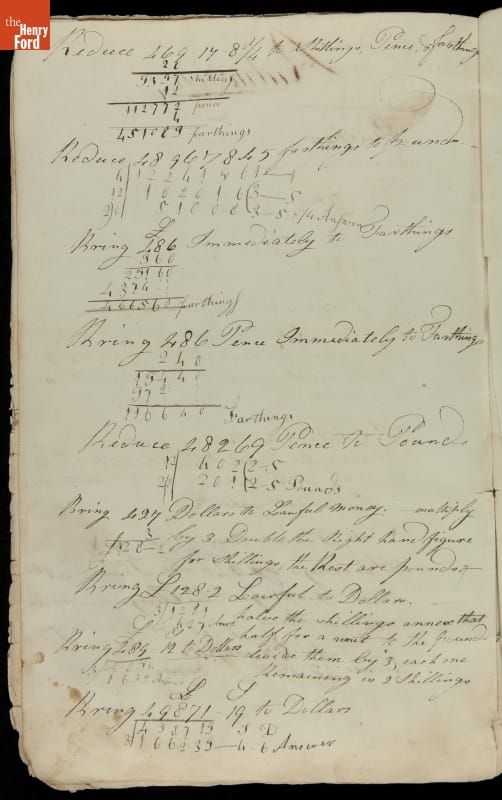 the
Henry
Ford
Reduce 469 17 8 3/4 to Shillings, Pence, & farthings
22
9397 shillings
12
112772 pence
4
451089 farthings
Reduce 48967845 farthings to pounds
4
12 1020616(3-5
20 51008(3-5 1/4 Answer
£
Bring 486 Immediately to Farthings
960
29160
4374
466560 farthings
Bring 486 Pence Immediately to Farthings
240
19440
972
116640 Farthings
Reduce 48269 Pence to Pounds
12 402(2-5
20 201(2-5 Pounds
Bring 427 Dollars to Lawful Money. multiply
3
128-2
by 3 Double the Right hand figure
for shillings, the Rest are pounds
Bring £128-2 Lawful to Dollars.
3 1281
427
halve the shillings annex that
half for a unit to the pounds
Bring 489 12 to Dollars
divide them by 3, each one
Remaining is 2 shillings
1632
£ S
Bring 49871-19 to Dollars
S D
3 166239-4 6 Answer